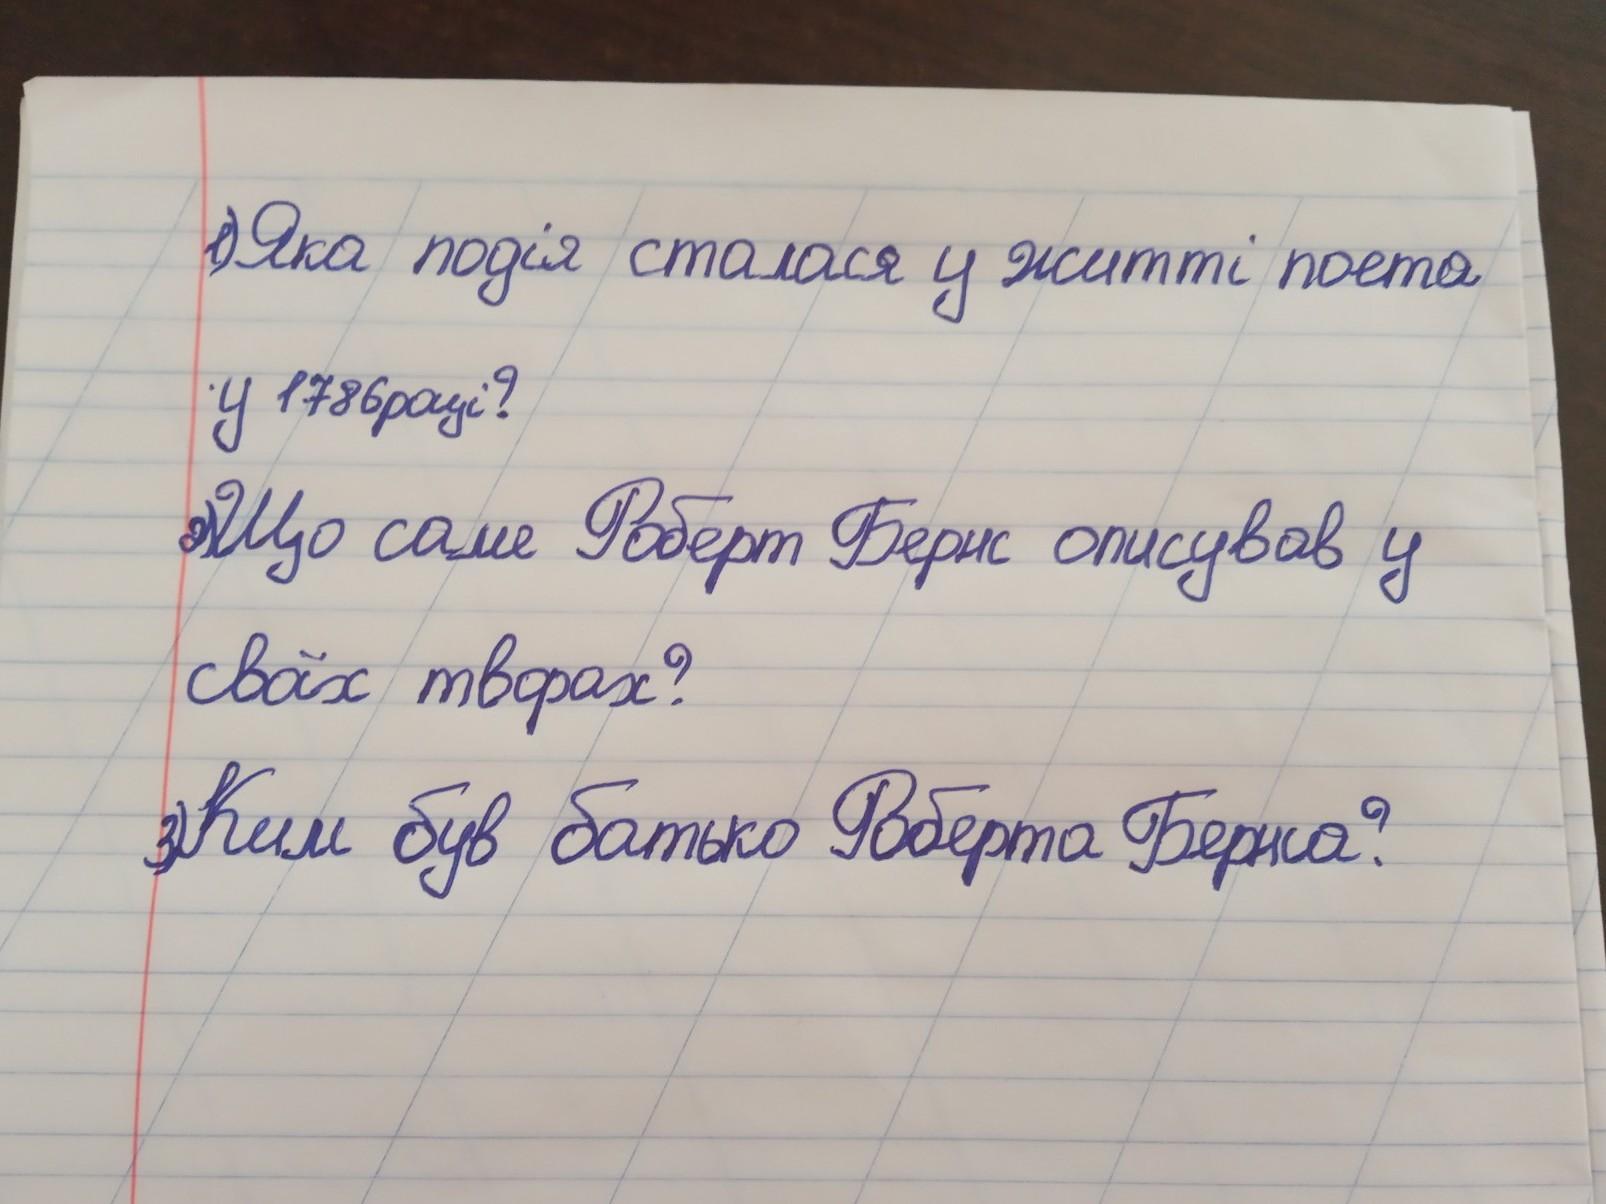 1) Яка подія сталася у житті поета
у 1786 році?
2) Що саме Роберт Бернс описував у
своїх творах?
3) Ким був батько Роберта Бернса?